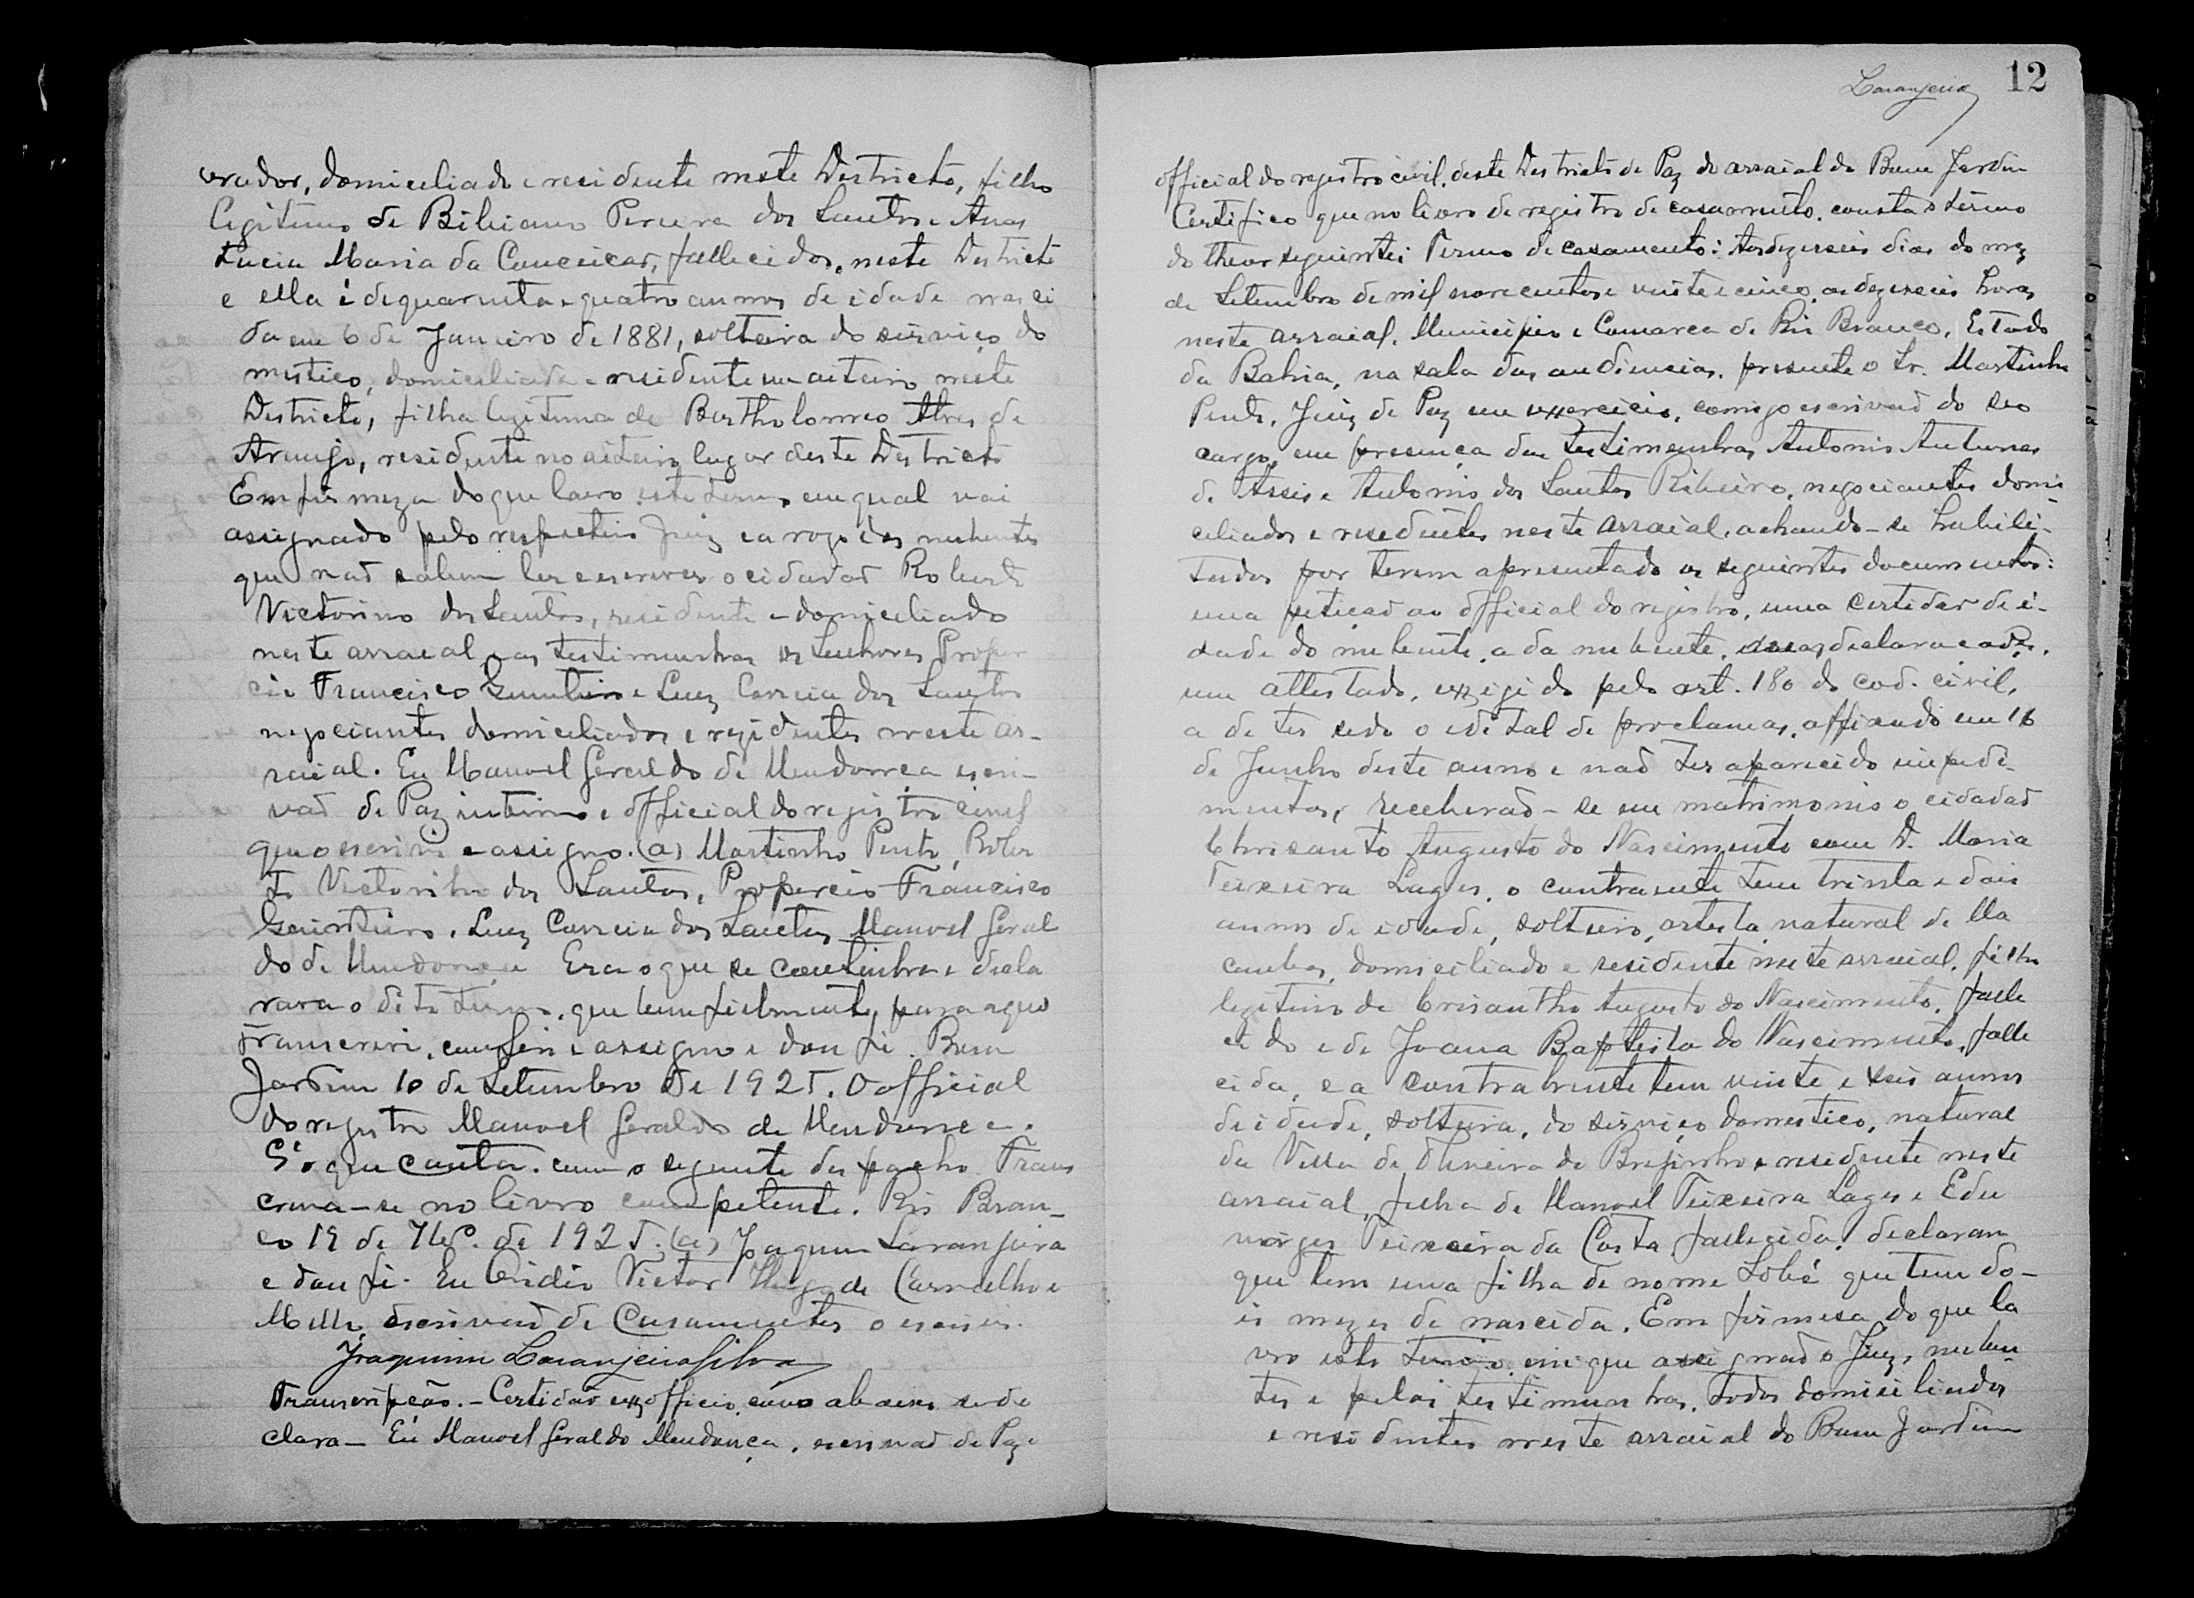 vrador, domiciliado e residente neste Districto, filho
legitimo de Bibiano Pereira dos Santos e Anna
Lucia Maria da Conceicaõ, fallecidos, neste Districto
e ella é de quarenta e quatro annos de idade nasci
da em 6 de Janeiro de 1881, solteira do serviço do
mestico, domiciliada e residente em oiteiro neste
Districto, filha legitima de Bertholomeo Alves de
Araujo, residente no oiteiro lugar deste Districto
Em firmeza do que lavro este termo em qual vai
assignado pelo respectivo Juiz e a rogo dos nubentes
que naõ sabem ler e escrever o cidadaõ Roberto
Victorino dos Santos, residente e domiciliado
neste arraial e as testimunhas os Senhores Proper
cio Francisco e Luiz Correia dos Santos
negociantes domiciliados e rezidentes neste ar-
raial. Eu Manoel Geraldo de Mendonça escri-
vaõ de Paz interino e official do registro civil
que o escrivi e assigno. (a) Martinho Pinto, Rober
to Victorinho dos Santos, Propercio Francisco
Luiz Correia dos Santos Manoel Geral
do de Mendonça Era o que se continha e decla
rava o dito termo, que bem fielmente, para aqui
transcrevi, conferi e assigno e dou fé. Bom
Jardim 10 de Setembro de 1925. O official
do registro Manoel Geraldo de Mendonça.
É o que conta. com o seguinte despacho Trans
creva-se no livro competente. Rio Bran-
co 19 de 7bro. de 1925. (a) Joaquim Laranjeira
e dou fé. Eu Ovidio Victor Hugo de Carvalho e
Mello, escrivaõ de Casamentos o escrevi.
Joaquim Laranjeira Silva
Transcripção. - Certidaõ exofficio, como abaixo se de
clara - Eu Manoel Geraldo Mendonça, escrivaõ de Paz e
Laranjeira 12
official do registro civil, deste Districto de Paz do arraial do Bom Jardim
Certifico que no livro de registro de casamento, consta o termo
do theor seguinte: Termo de casamento: Aos dezeseis dias do mez
de Setembro de mil novecentos e vinte e cinco, as dezeseis horas
neste arraial, Municipio e Comarca de Rio Branco, Estado
da Bahia, na sala das audiencias, presente o Sr. Martinho
Pinto, Juiz de Paz em exzercicio, comigo escrivaõ do seo
cargo, em presença das testimunhas Antonio Antunes
de Assis e Antonio dos Santos Ribeiro, negociantes domi-
ciliados e residentes neste arraial, achando-se habili-
tados por terem apresentado os seguintes documentos:
uma petiçaõ ao official do registro, uma certidaõ de i-
dade do nubente, a da nubente, suas declaracaões,
um attestado, exzigido pelo art. 180 do cod. civil,
a de ter sido o edital de proclamas, affixado em 16
de Junho deste anno e naõ ter aparecido impedi-
mentos, receberaõ-se em matrimonio o cidadaõ
Chrisanto Augusto do Nascimento com D. Maria
Teixeira Lages, o contraente tem trinta e dois
annos de idade, solteiro, artista, natural de Ma
caubas, domiciliado e residente neste arraial, filho
legitimo de Crisantho Augusto do Nascimento, falle
cido e de Joana Baptista do Nascimento, falle
cida, e a contrahente tem vinte e seis annos
de idade, solteira, do serviço domestico, natural
da Villa de Oliveira do Brejinho e residente neste
arraial, filha de Manoel Teixeira Lages e Edu
Teixeira da Costa fallecida, declaram
que tem uma filha de nome que tem do-
is mezes de nascida. Em firmesa do que la
vro este termo, em que assignaõ o Juiz, nuben
tes e pelas testimunhas, todos domiciliados
e residentes neste arraial do Bom Jardim